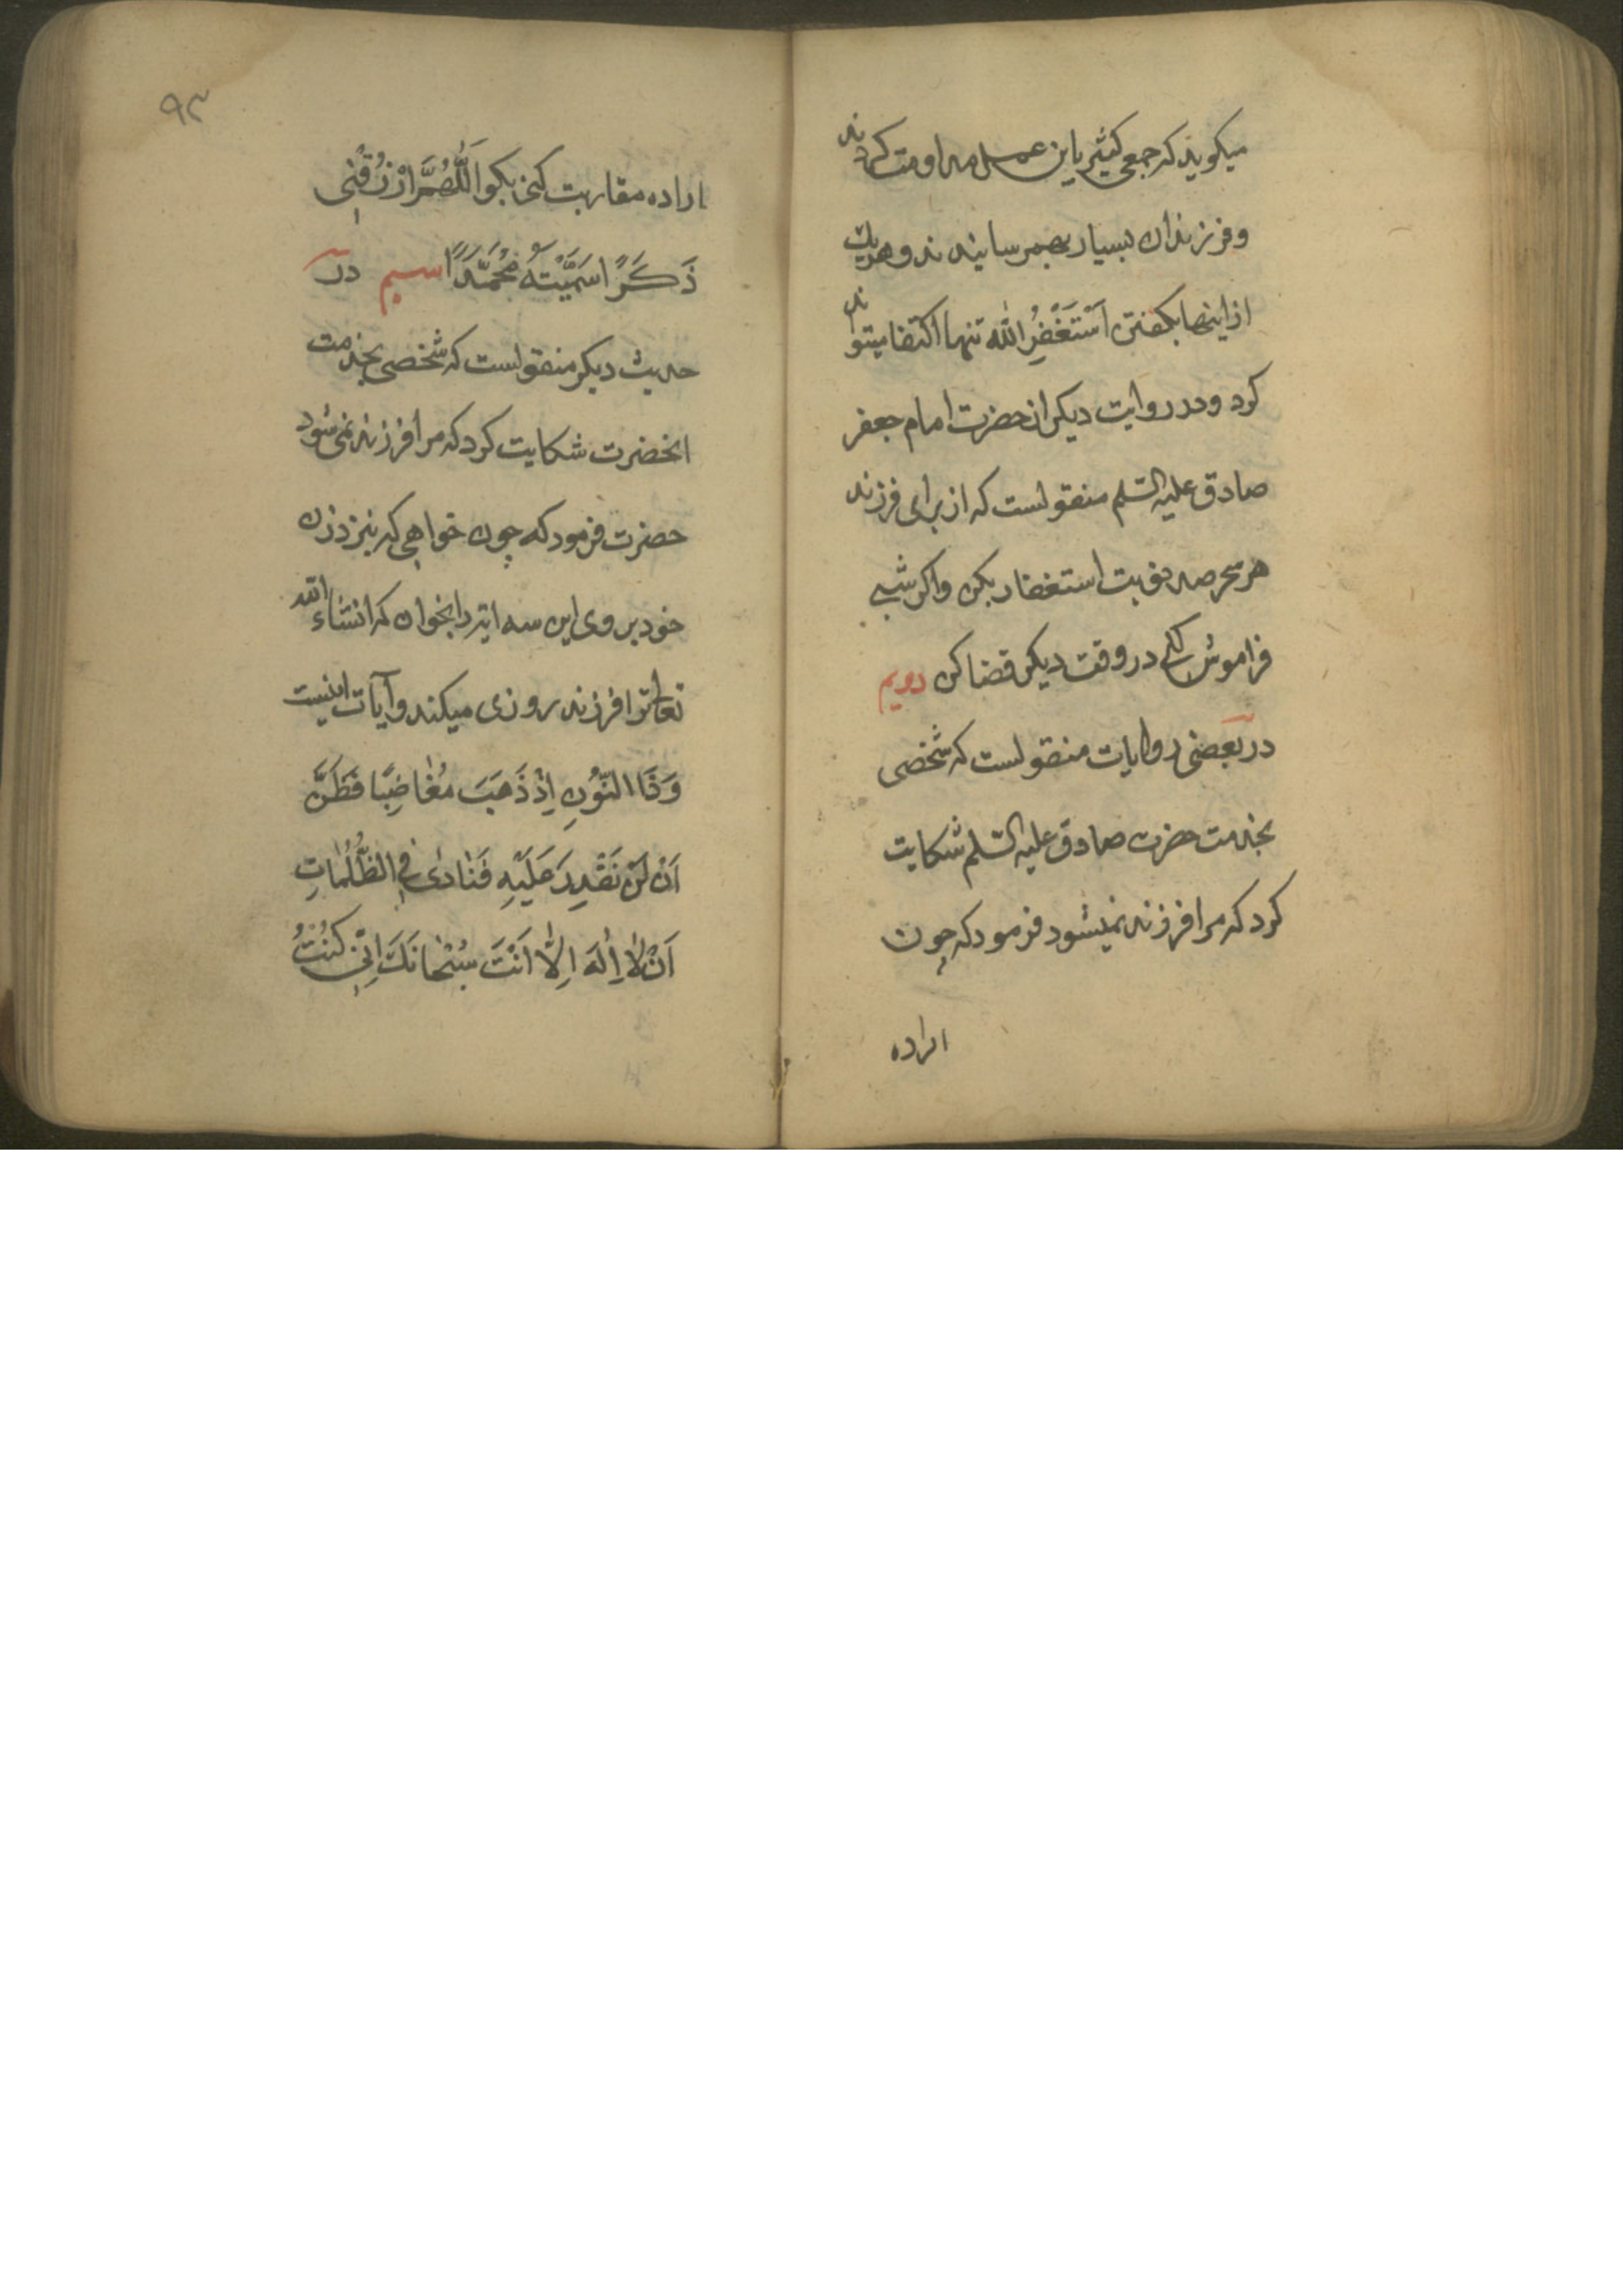 میکویند که جمعی کثیر باین عمل مداومت کردند
و فرزندان بسیار بهمرسانیدند و هریک
از اینها بکفتن اَسْتَغْفِرُ اللّٰه تنها اکتفا میتواند
کرد و در روایت دیکر از حضرت امام جعفر
صادق علیه السّلم منقولست که از برای فرزند
هر سحر صد نوبت استغفار بکن واکر شبی
فراموش کنی در وقت دیکر قضا کن دویم
در بعضی روایات منقولست که شخصی
بخدمت حضرت صادق علیه السّلم شکایت
کرد که مرا فرزند نمیشود فرمود که چون
اراده
۹۳
اراده مقاربت کنی بکو اَللّٰهُمَّ ارْزُقْنِی
ذَکَرًا سَمَّیْتُهُ مُحَمَّدًا سیم در
حدیث دیکر منقولست که شخصی بخدمت
انحضرت شکایت کرد که مرا فرزند نمی شود
حضرت فرمود که چون خواهی که بنزد زن
خود بروی این سه ایه را بخوان که انشاء الله
تعالی ترا فرزند روزی میکند و آیات اینست
وَ ذَا النُّونِ اِذْ ذَهَبَ مُغٰاضِبًا فَظَنَّ
اَنْ لَنْ نَقْدِرَ عَلَیْهِ فَنٰادیٰ فِی الظُّلُمٰاتِ
اَنْ لٰا اِلٰهَ اِلّٰا اَنْتَ سُبْحٰانَکَ اِنّی کُنْتُ